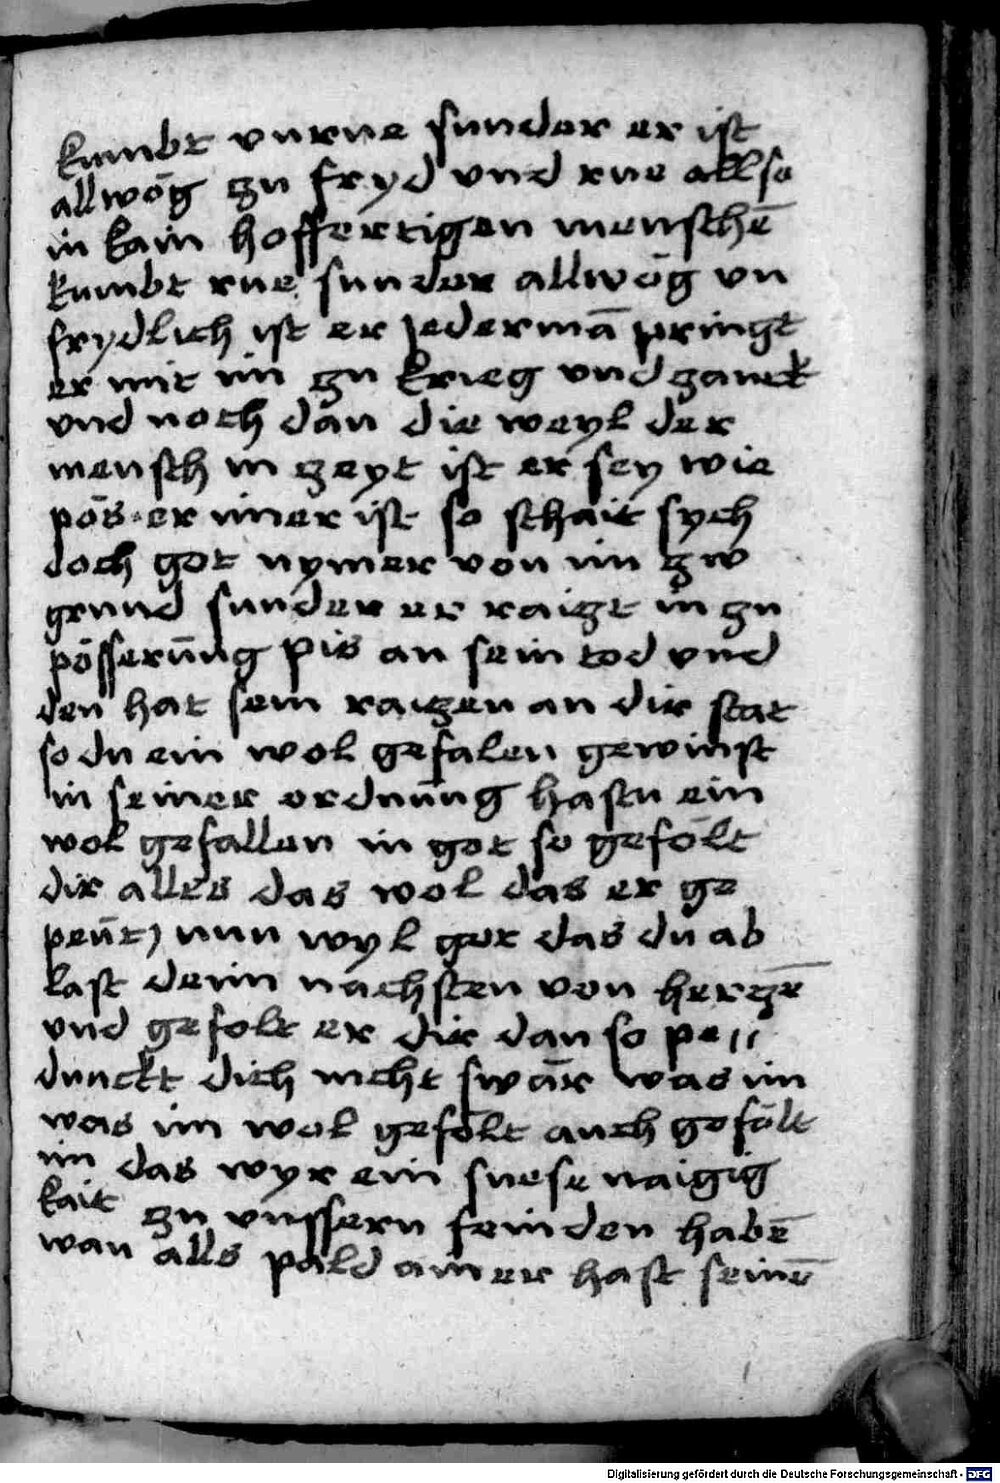 kumbt vnrue sunder er ist
allwög zu fryd vnd rue allso
in kain hoffertigen menschē
kumbt rue sunder allwög vn
frydlich ist er jedermā pringt
er mit im zu krieg vnd zanck
vnd noch dan die weyl der
mensch in zeyt ist er sey wie
pös er imer ist so schait sych
doch got nymer von im zw
grund sunder er raizt in zu
pösserūng pis an sein tod vnd
den hat sein raizen an dir stat
so du ein wol gefalen gewinst
in seiner ordnūng hastu ein
wol gefallen in got so gefölt
dir alles das wol das er ge
peūt) nun wyl got das du ab
last deim nachsten von herzē
vnd gefolt er dir dan so pe〃
dunckt dich nicht swär was im
was im wol gefölt auch gefölt
im das wyr ein suese naigig
kait zu vnssern feinden habē
wan alls pald ainer hast seinē
Digitalisierung gefördert durch die Deutsche Forschungsgemeinschaft - DFG